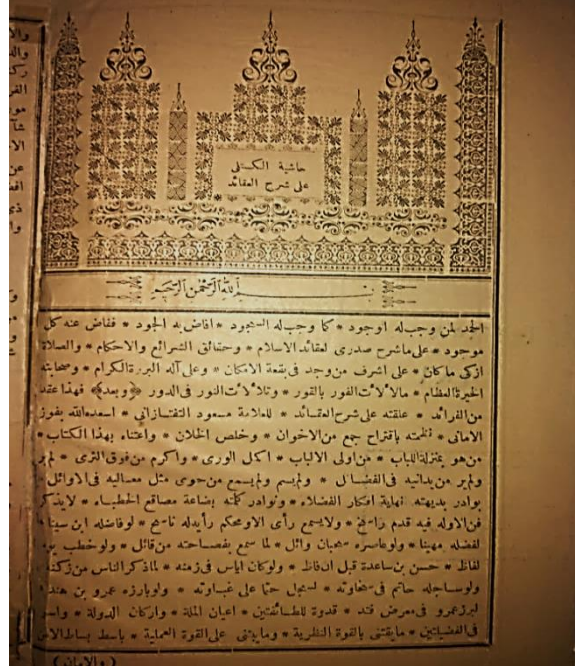 حاشية الكستلى
على شرح العقائد
بسم الله الرحمن الرحيم
الحمد لمن وجب له الوجود * كما وجب له السجود * افاض به الجود * ففاض عنه كل
موجود * على ما شرح صدرى لعقائد الاسلام * وحقائق الشرائع والاحكام * والصلاة
ازكى ما كان * على اشرف من وجد فى بقعة الامكان * وعلى آله البررة الكرام * وصحابته
الخيرة العظام * ما لألأت الفور بالقور * وتلألأت النور فى الدور * ﴿وبعد﴾ فهذا عقد
من الفرائد * علقته على شرح العقائد * للعلامة مسعود التفتازانى * اسعده الله بفوز
الامانى * نظمته باقتراح جمع من الاخوان * وخلص الخلان * واعتناء بهذا الكتاب *
من هو بمنزلة اللباب * من اولى الالباب * اكمل الورى * واكرم من فوق الثرى * لم ير
ولم ير من يدانيه فى الفضائل * ولم يسم ولم يسمع من حوى مثل معاليه فى الاوائل *
بوادر بديهته نهاية افكار الفضلاء * ونوادر كلمته بضاعة مصاقع الخطباء * لا يذكر
فن الا وله فيه قدم راسخ * ولا يسمع رأى الا ومحكم رأيه له ناسخ * لو فاضله ابن سينا *
لفضله مهينا * ولو عاصره سحبان وائل * لما سمع بفصاحته من قائل * ولو خطب
لفاظ * حسن بن ساعدة قبل ان فاظ * ولو كان اياس فى زمنه * ما ذكر الناس من زكنه
ولو ساجله حاتم فى سخاوته * لسجل حتما على غباوته * ولو بارزه عمرو بن هند
لبرز عمرو فى معرض قند * قدوة للطائفتين * اعيان الملة * واركان الدولة *
فى الفضيلتين * ما يقتنى بالقوة النظرية * وما يبتنى على القوة العملية * باسط بساط
( والامان )